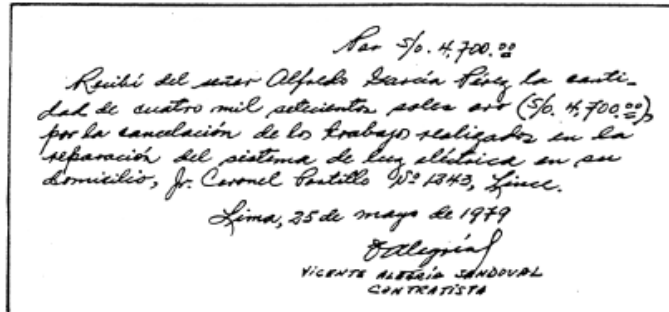 Por S/o. 4,700.00
Recibí del señor Alfredo García Pérez la canti-
dad de cuatro mil setecientos soles oro (S/o. 4,700.00),
por la cancelación de los trabajos realizados en la
reparación del sistema de luz eléctrica en su
domicilio, Jr. Coronel Portillo Nº 1343, Lince.
Lima, 25 de mayo de 1979
VAlegríaS
VICENTE ALEGRÍA SANDOVAL
CONTRATISTA